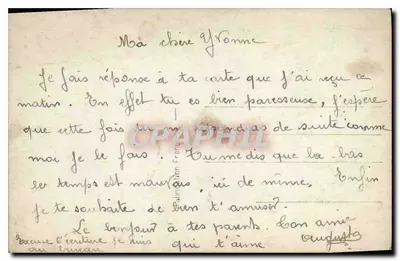 Ma chère Yvonne
Je fais réponse à ta carte que j'ai reçu ce
matin. En effet tu es bien paresseuse, j'espère
que cette fois tu m' répondras de suite comme
moi je le fais. Tu me dis que la bas
le temps est mauvais, ici de même. Enfin
je te souhaite de bien t'amuser.
Le bonjour à tes parents. Ton amie
qui t'aime Auguste
Excuse l'écriture je suis
au bureau
CPARAMA